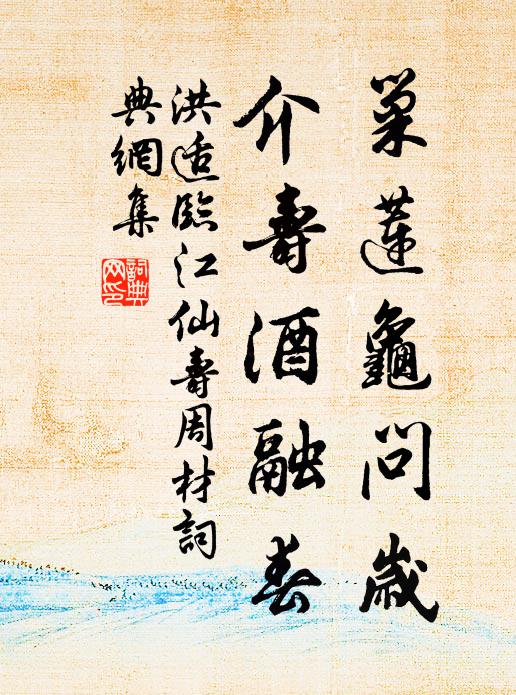 巢蓮龜問歲
介壽酒融春
洪适臨江仙壽周材詞
典網集
詞典網印